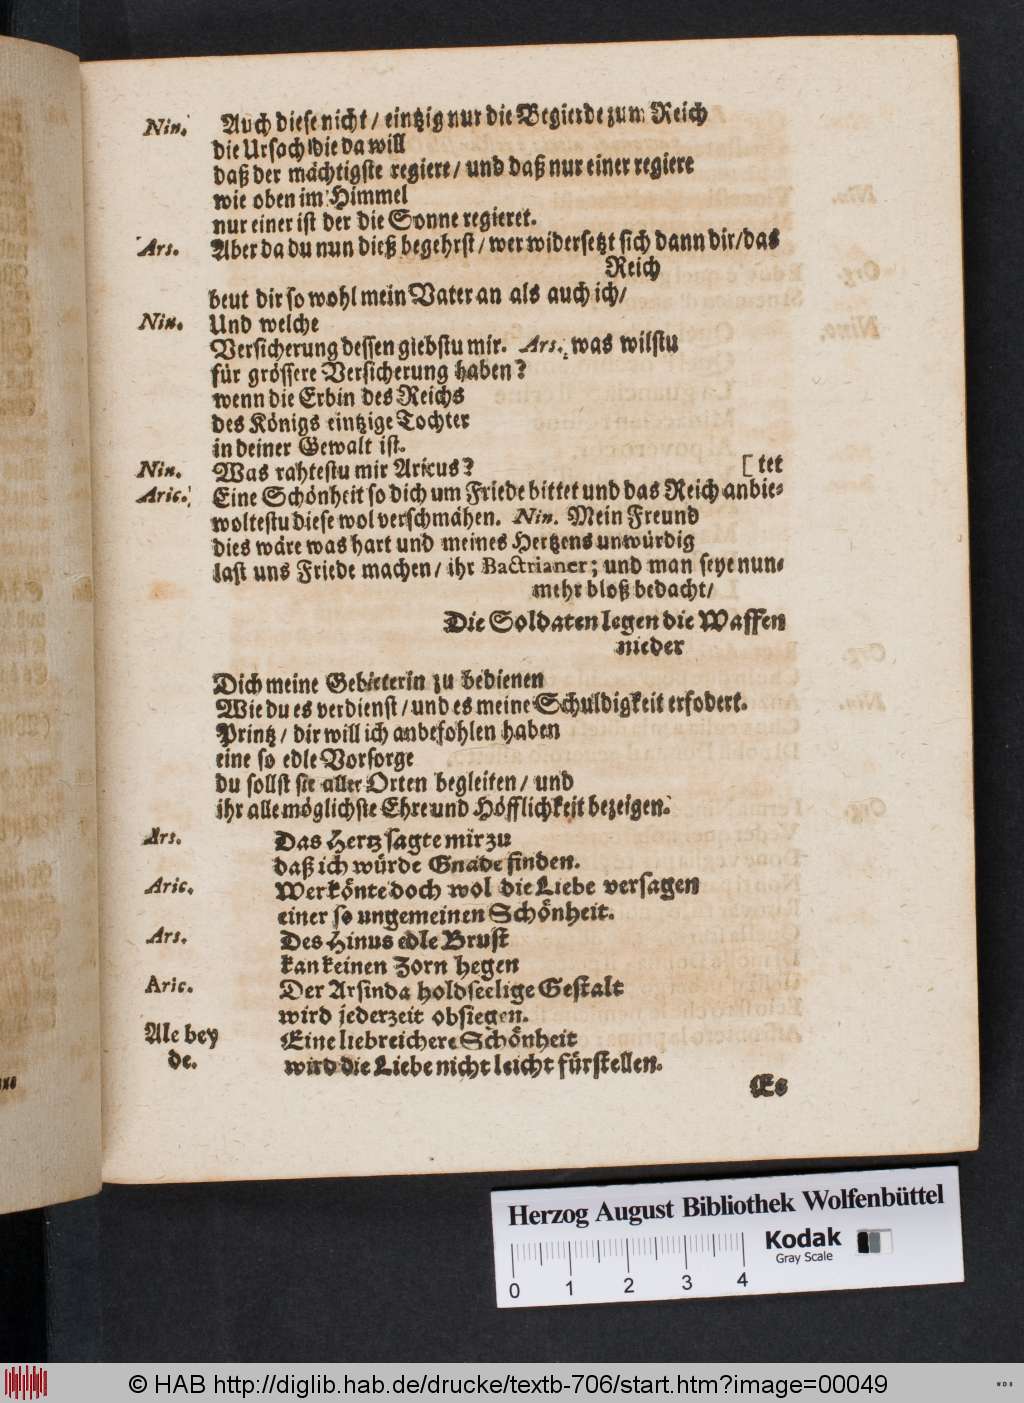 Nin. Auch diese nicht / eintzig nur die Begierde zum Reich
die Ursach die da will
daß der mächtigste regiere / und daß nur einer regiere
wie oben im Himmel
nur einer ist der die Sonne regieret.
Ars. Aber da du nun dieß begehrst / wer widersetzt sich dann dir / das
Reich
beut dir so wohl mein Vater an als auch ich /
Nin. Und welche
Versicherung dessen giebstu mir. Ars. was wilstu
für grössere Versicherung haben?
wenn die Erbin des Reichs
des Königs eintzige Tochter
in deiner Gewalt ist.
Nin. Was rahtestu mir Aricus? [tet
Aric. Eine Schönheit so dich um Friede bittet und das Reich anbie-
woltestu diese wol verschmähen. Nin. Mein Freund
dies wäre was hart und meines Hertzens unwürdig
last uns Friede machen / ihr Bactrianer; und man seye nun-
mehr bloß bedacht /
Die Soldaten legen die Waffen
nieder
Dich meine Gebieterin zu bedienen
Wie du es verdienst / und es meine Schuldigkeit erfodert.
Printz / dir will ich anbefohlen haben
eine so edle Vorsorge
du sollst sie aller Orten begleiten / und
ihr alle möglichste Ehre und Höfflichkeit bezeigen.
Ars. Das Hertz sagte mir zu
daß ich würde Gnade finden.
Aric. Wer könte doch wol die Liebe versagen
einer so ungemeinen Schönheit.
Ars. Des Hinus edle Brust
kan keinen Zorn hegen
Aric. Der Arsinda holdseelige Gestalt
wird jederzeit obsiegen.
Ale bey Eine liebreichere Schönheit
de. wird die Liebe nicht leicht fürstellen.
Es
Herzog August Bibliothek Wolfenbüttel
Kodak
Gray Scale
0 1 2 3 4
© HAB http://diglib.hab.de/drucke/textb-706/start.htm?image=00049